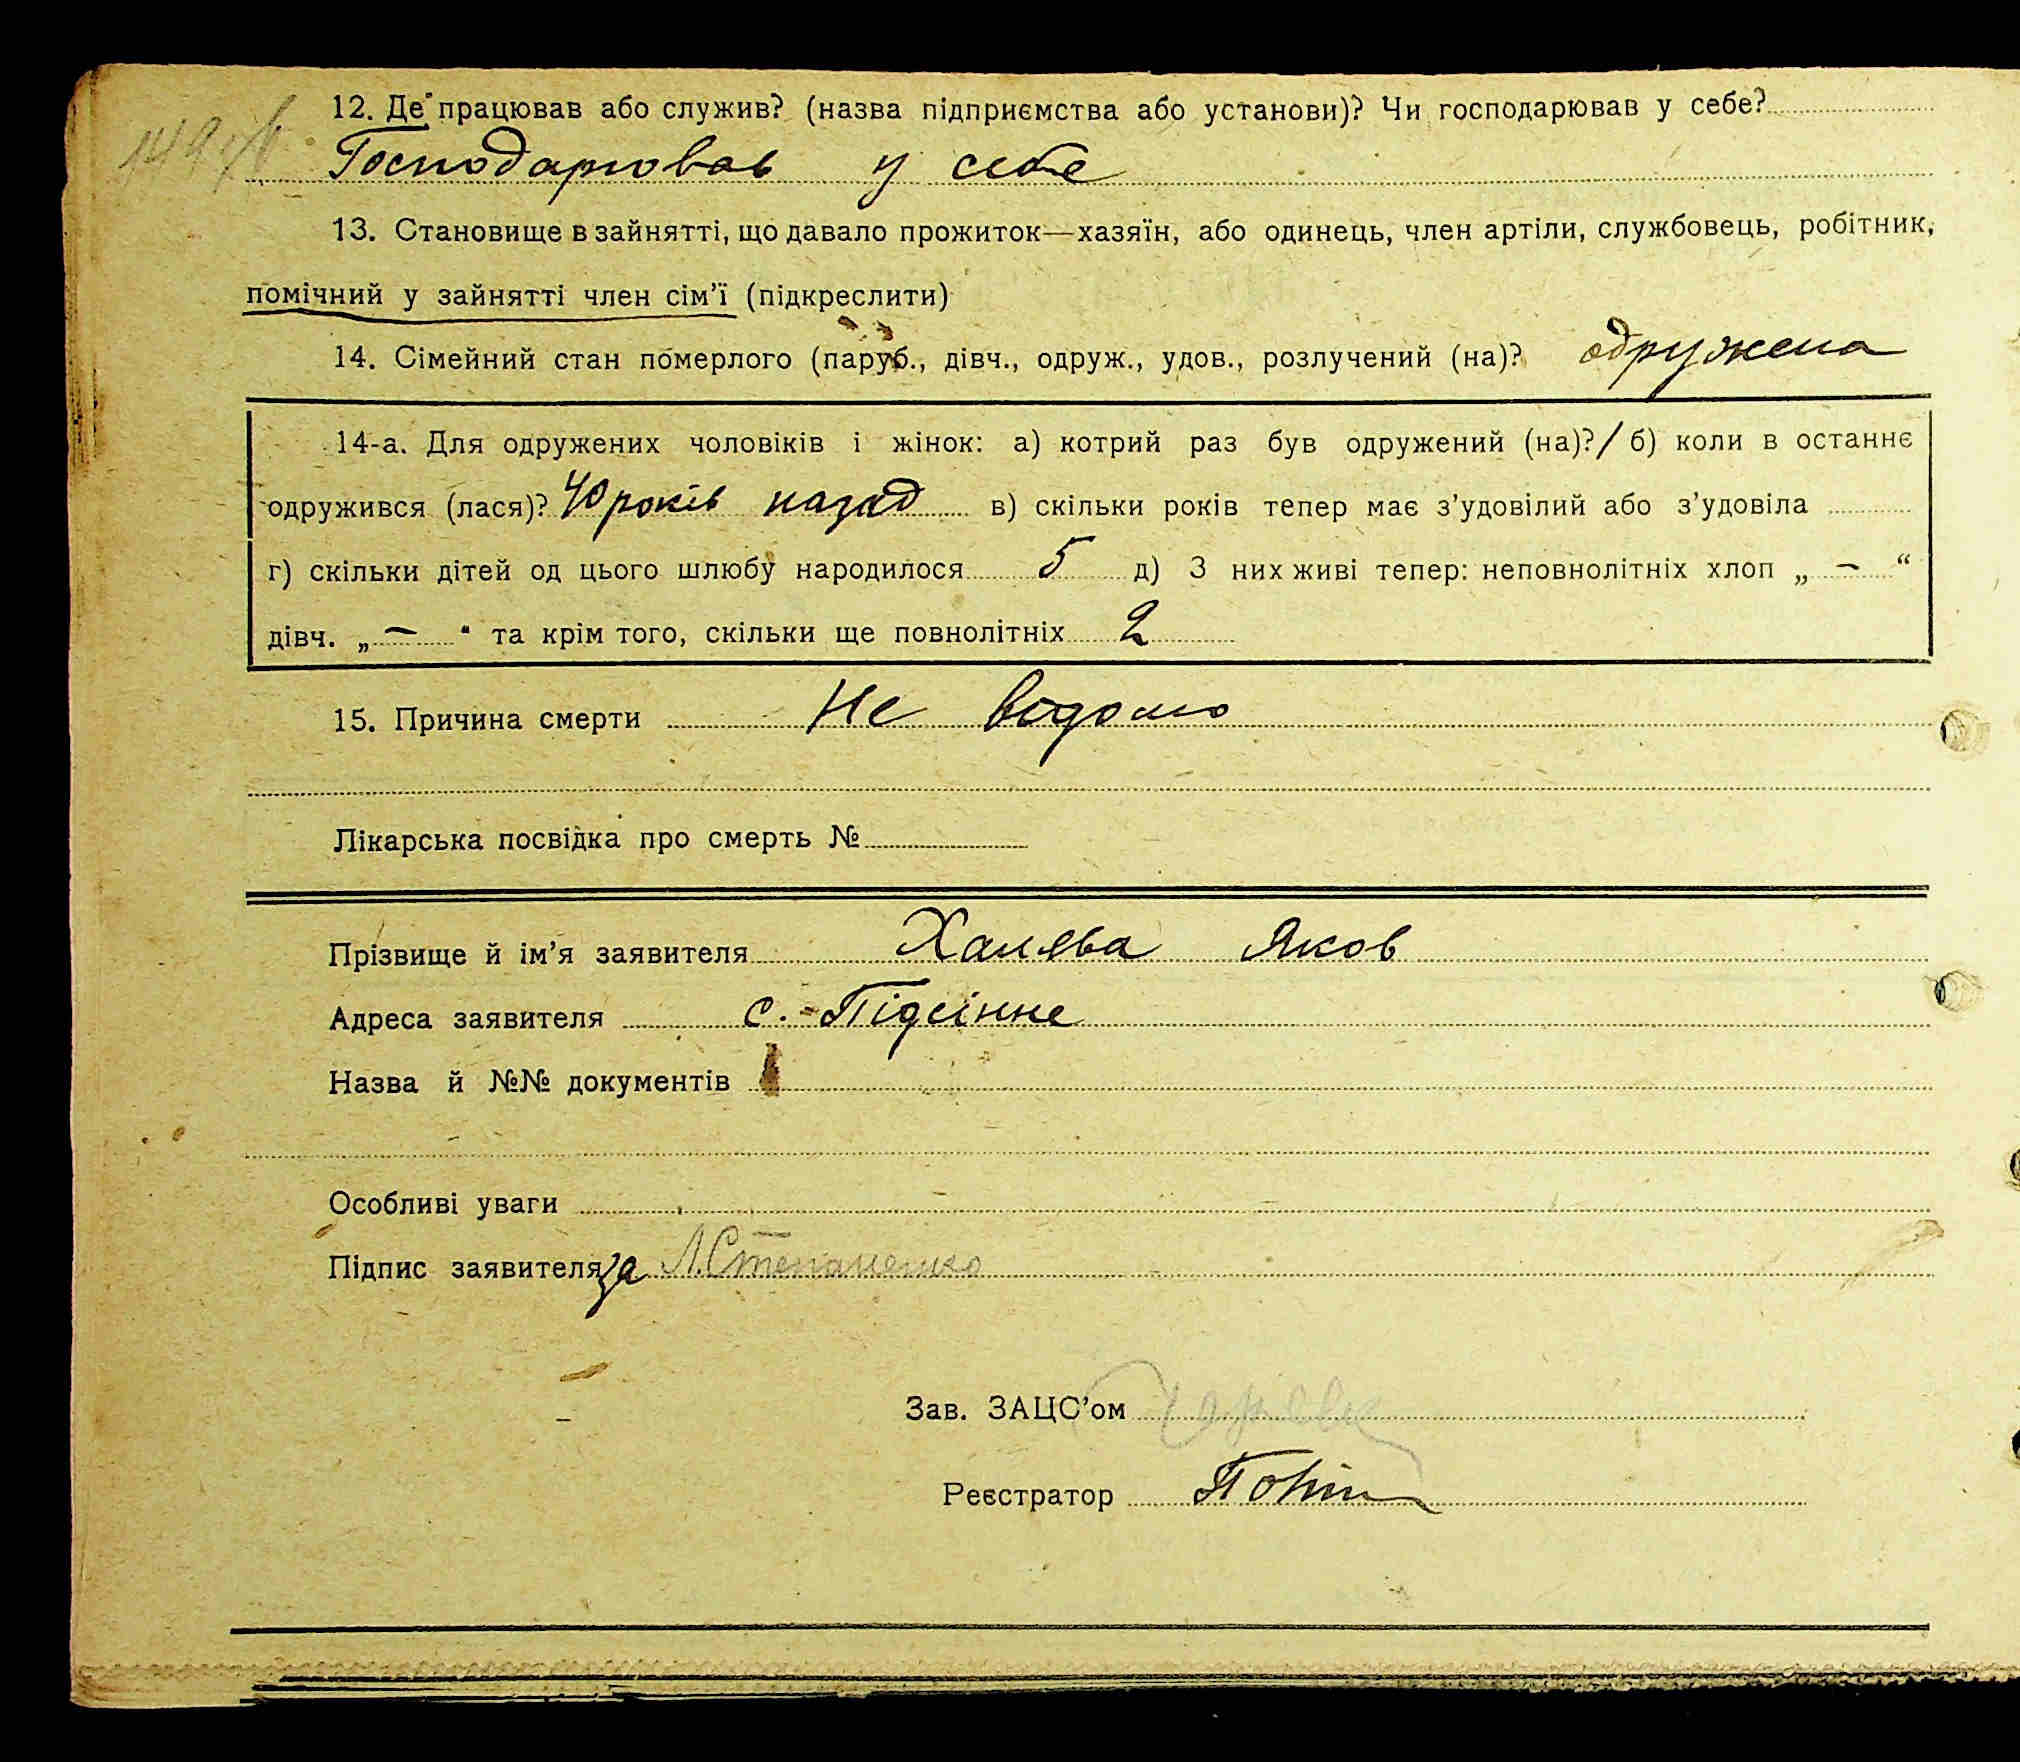 149зв
12. Де працював або служив? (назва підприємства або установи)? Чи господарював у себе?
Господарював у себе
13. Становище в зайнятті, що давало прожиток—хазяїн, або одинець, член артіли, службовець, робітник,
помічний у зайнятті член сім'ї (підкреслити)
14. Сімейний стан померлого (паруб., дівч., одруж., удов., розлучений (на)? одружена
14-а. Для одружених чоловіків і жінок: а) котрий раз був одружений (на)? / б) коли в останнє
одружився (лася)? 40 років назад в) скільки років тепер має з'удовілий або з'удовіла
г) скільки дітей од цього шлюбу народилося 5 д) З них живі тепер: неповнолітніх хлоп „ — “
дівч. „ — “ та крім того, скільки ще повнолітніх 2
15. Причина смерти Не водомо
Лікарська посвідка про смерть №
Прізвище й ім'я заявителя Халява Яков
Адреса заявителя с. Підсінне
Назва й №№ документів
Особливі уваги
Підпис заявителя за Л. Степаненко
Зав. ЗАЦС'ом
Реєстратор